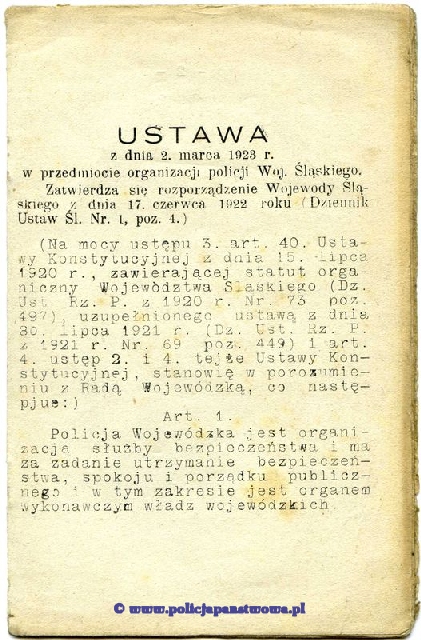 USTAWA
z dnia 2. marca 1923 r.
w przedmiocie organizacji policji Woj. Śląskiego.
Zatwierdza się rozporządzenie Wojewody Ślą-
skiego z dnia 17. czerwca 1922 roku (Dziennik
Ustaw Śl. Nr. 1, poz. 4.)
(Na mocy ustępu 3. art. 40. Usta-
wy Konstytucyjnej z dnia 15. lipca
1920 r., zawierającej statut orga
niczny Województwa Śląskiego (Dz.
Ust. Rz. P. z 1920 r. Nr. 73 poz.
497), uzupełnionego ustawą z dnia
30. lipca 1921 r. (Dz. Ust. Rz. P.
z 1921 r. Nr. 69 poz. 449) i art.
4. ustęp 2. i 4. tejże Ustawy Kon-
stytucyjnej, stanowię w porozumie-
niu z Radą Wojewódzką, co nastę-
pjue:)
Art. 1.
Policja Wojewódzka jest organi-
zacją służby bezpieczeństwa i ma
za zadanie utrzymanie bezpieczeń-
stwa, spokoju i porządku publicz-
nego i w tym zakresie jest organem
wykonawczym władz wojewódzkich.
© www.policjapanstwowa.pl